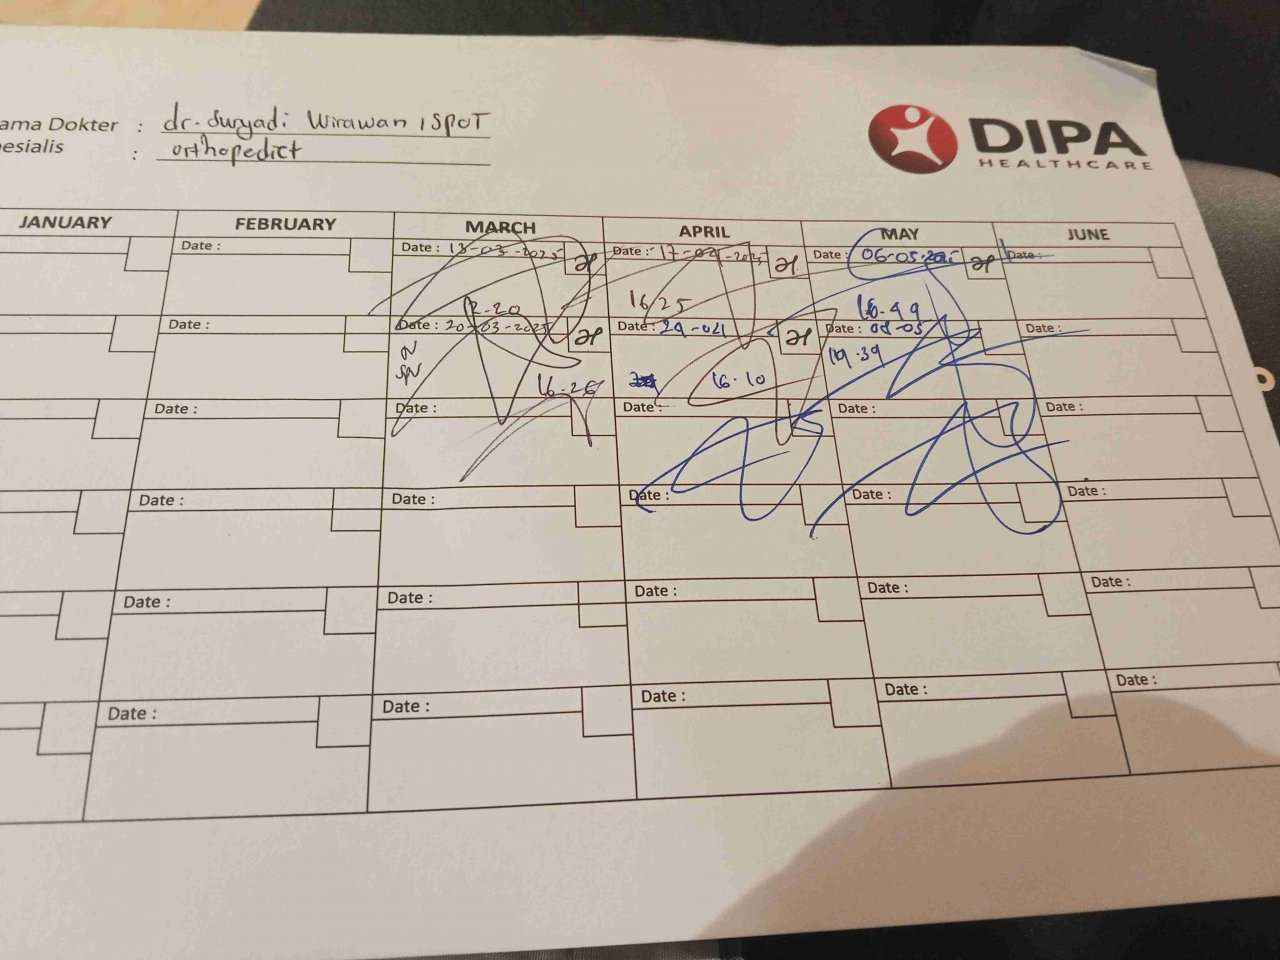 ama Dokter : dr. Suryadi Wirawan, SpOT
esialis : Orthopedict
DIPA
HEALTHCARE
JANUARY FEBRUARY MARCH APRIL MAY JUNE
Date : Date : 13-03-2025 Date : 17-04-2025 Date : 06-05-2025 Date :
16.25 16.49
Date : Date : 20-03-2025 Date : 29-04 Date : 08-05 Date :
16.26 16.10 19.39
Date : Date : Date : Date : Date :
Date : Date : Date : Date : Date :
Date : Date : Date : Date : Date :
Date : Date : Date : Date : Date :